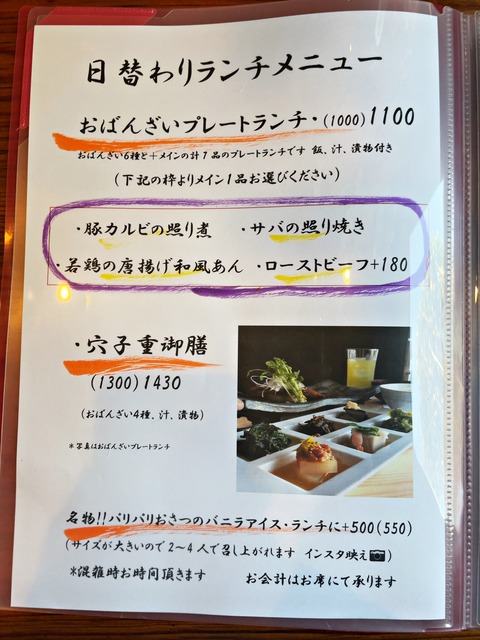 日替わりランチメニュー
おばんざいプレートランチ・(1000)1100
おばんざい6種と+メインの計7品のプレートランチです 飯、汁、漬物付き
(下記の枠よりメイン1品お選びください)
・豚カルビの照り煮 ・サバの照り焼き
・若鶏の唐揚げ和風あん ・ローストビーフ+180
・穴子重御膳
(1300)1430
(おばんざい4種、汁、漬物)
*写真はおばんざいプレートランチ
名物!!パリパリおさつのバニラアイス・ランチに+500(550)
(サイズが大きいので2～4人で召し上がれます インスタ映え📷)
*混雑時お時間頂きます お会計はお席にて承ります